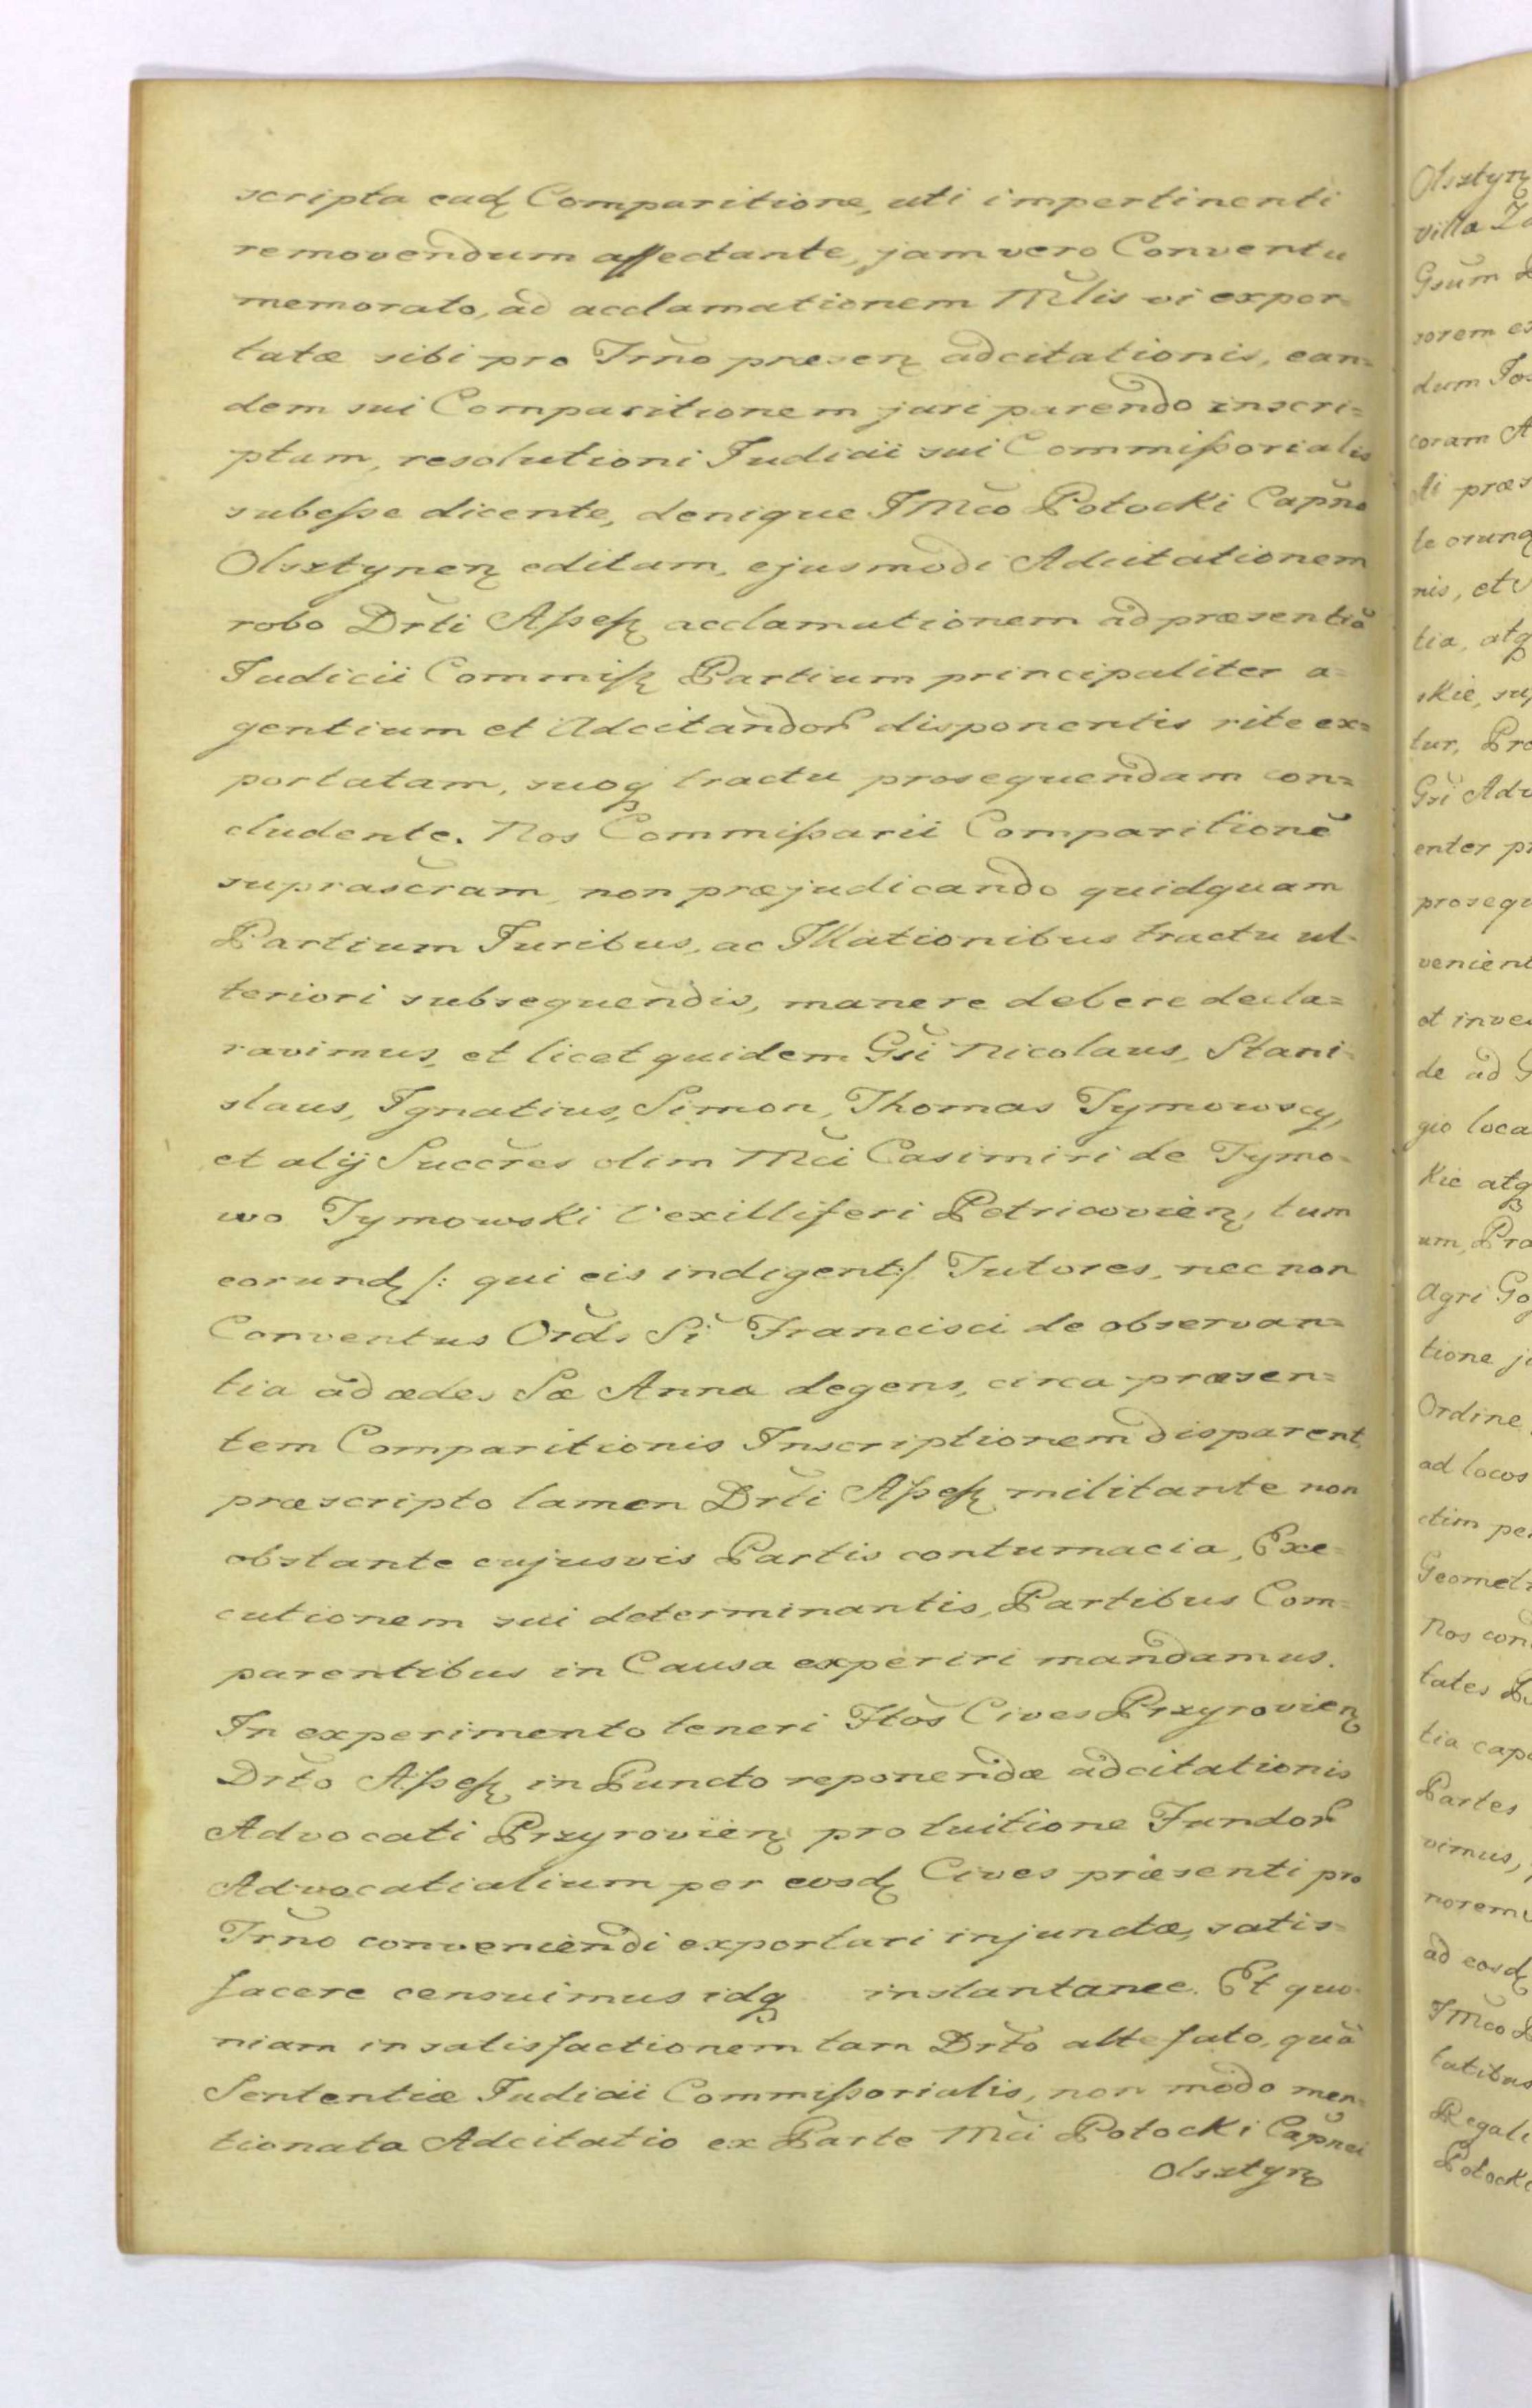 scripta eadꝫ Comparitione, uti impertinenti
removendum affectante, jam vero Conventu
memorato, ad acclamationem Mlis vi expor-
tatæ sibi pro Trno præsenꝫ adcitationis, ean=
dem sui Comparitionem juri parendo inscri=
ptam, resolutioni Judicii sui Commißorialis
subeße dicente, denique JMco Potocki Capno
Olsztynenꝫ editam, ejusmodi Adcitationem
robo Drti Aßeßꝫ acclamationem ad præsentiã
Judicii Commißꝫ Partium principaliter a=
gentium et Adcitandor disponentis rite ex=
portatam, suoqꝫ tractu prosequendam con=
cludente. Nos Commißarii Comparitionẽ
suprascram, non præjudicando quidquam
Partium Juribus, ac Illationibus tractu ul-
teriori subsequendis, manere debere decla=
ravimus, et licet quidem Gsi Nicolaus, Stani-
slaus, Ignatius, Simon, Thomas Tymowscy,
et alij Succres olim Mci Casimiri de Tymo-
wo Tymowski Vexilliferi Petricovienꝫ, tum
eorundꝫ /: qui eis indigent:/ Tutores, nec non
Conventus Ord. Si Francisci de observan=
tia ad ædes Sæ Anna degens, circa præsen=
tem Comparitionis Inscriptionem disparent,
præscripto tamen Drti Aßeßꝫ militante non
obstante cujusvis Partis contumacia, Exe=
cutionem sui determinantis, Partibus Com=
parentibus in Causa experiri mandamus.
In experimento teneri Htos Cives Przyrovienꝫ
Drto Aßeßꝫ in Puncto reponendæ adcitationis
Advocati Przyrovienꝫ pro tuitione Fundor
Advocatialium per eosdꝫ Cives præsenti pro
Trno conveniendi exportari injunctæ, satis=
facere censuimus idqꝫ instantanee. Et quo-
niam in satisfactionem tam Drto alte fato, quã
Sententiæ Judicii Commißorialis, non modo men=
tionata Adcitatio ex Parte Mci Potocki Capnei
Olsztynꝫ
Olsztynꝫ
villa
Gsum
sorem
dum
coram
præs
nis, et
tia, atqꝫ
skie,
tur,
Gsi Adv
enter
prosequ
venient
et inve
de ad
gio loca
kie atqꝫ
um,
Agri
tione
Ordine
ad locos
ctim
Geomet
Nos con
tates
tia cap
Partes
vimus,
norem
ad eosdꝫ
JMco
tatibus
Regali
Potocki